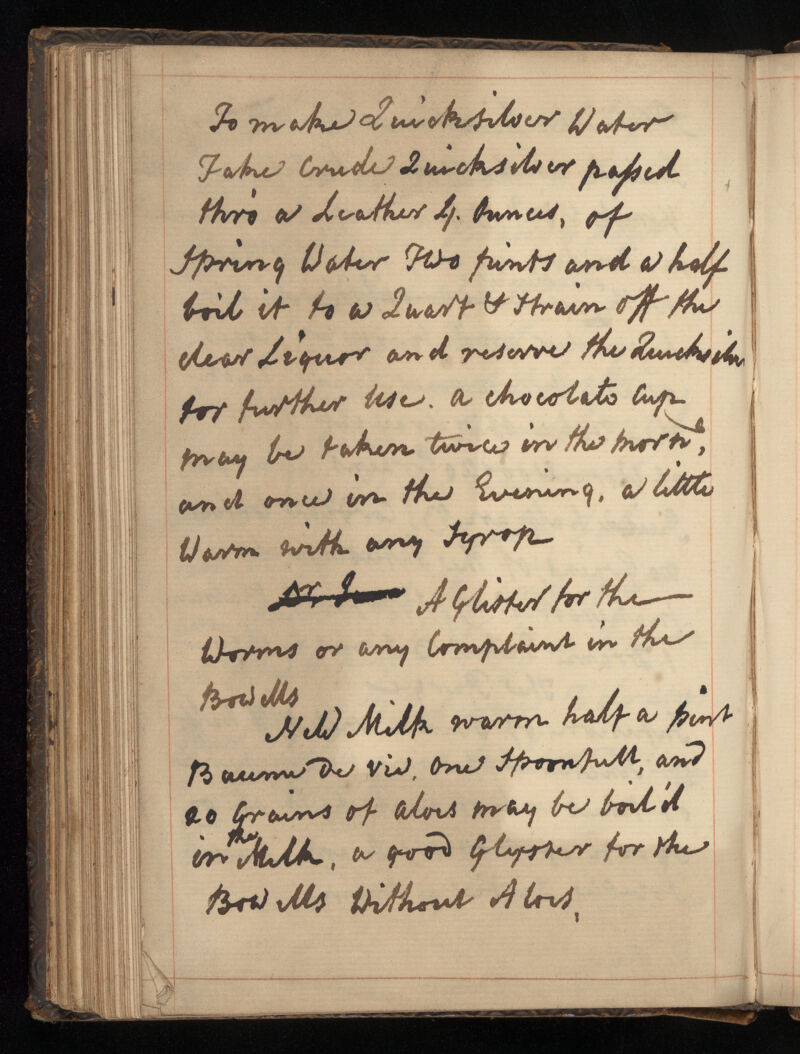 To make Quicksilver Water
Take Crude Quicksilver paſsed
thro a Leather 4. Ounces, of
Spring Water Two pints and a half
boil it to a Quart & Strain off the
clear Liquor and reserve the Quicksilver
for further Use. a chocolate Cup
may be taken twice in the morng,
and once in the Evening, a little
Warm with any Syrop
Dr. A Glister for the
Worms or any Complaint in the
Bowells
New Milk warm half a pint
Baume De vie, one Spoonfull, and
20 Grains of aloes may be boil'd
in the Milk, a good Glyster for the
Bowells Without Aloes,